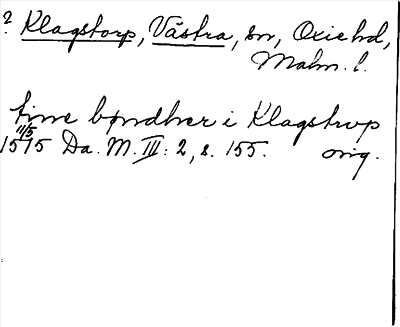 ? Klagstorp, Västra, sn, Oxie hd,
Malm. l.
tine bøndher i Klagstrup
11/5
1515 Da. M. III: 2, s. 155. orig.